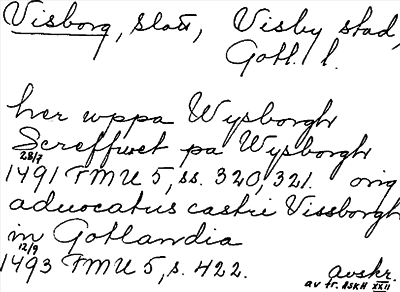 Visborg, slott, Visby stad,
Gotl. l.
her uppa Wysborgh
Screffwet pa Wysborgh
28/7
1491 FMU 5, ss. 320, 321. orig
aduocatus castri Vissborgh
in Gotlandia
12/9
1493 FMU 5, s. 422. avskr.
av tr. ASKH XXII